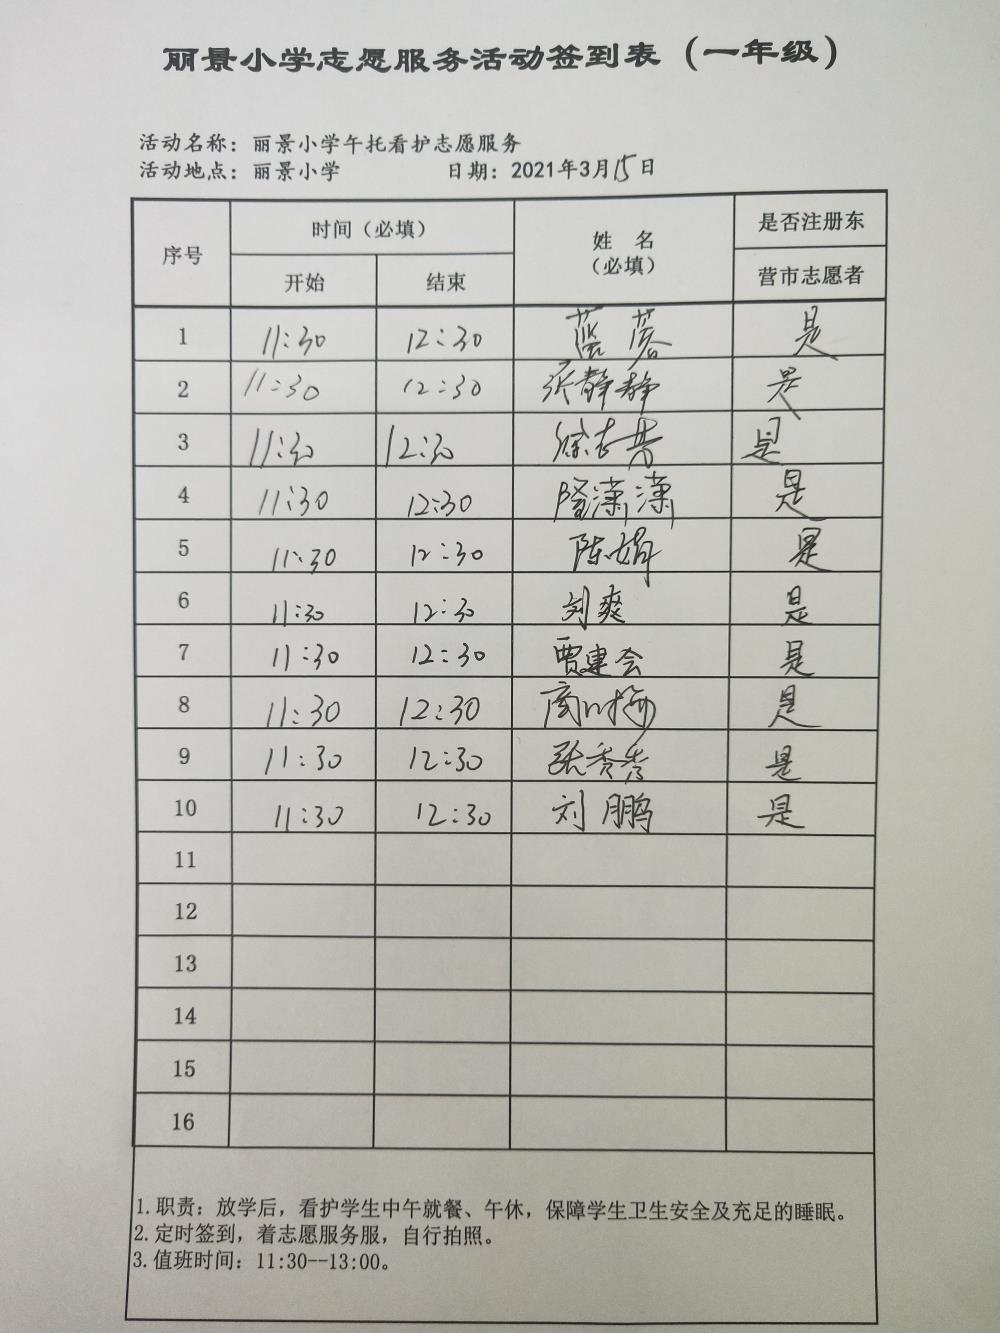 丽景小学志愿服务活动签到表（一年级）
活动名称：丽景小学午托看护志愿服务
活动地点：丽景小学 日期：2021年3月15日
序号 时间（必填） 姓 名（必填） 是否注册东
开始 结束 营市志愿者
1 11:30 12:30 蓝蓉 是
2 11:30 12:30 张静静 是
3 11:30 12:30 是
4 11:30 12:30 隆潇潇 是
5 11:30 12:30 陈娟 是
6 11:30 12:30 刘爽 是
7 11:30 12:30 贾建会 是
8 11:30 12:30 是
9 11:30 12:30 张秀芳 是
10 11:30 12:30 刘鹏 是
11
12
13
14
15
16
1.职责：放学后，看护学生中午就餐、午休，保障学生卫生安全及充足的睡眠。
2.定时签到，着志愿服务服，自行拍照。
3.值班时间：11:30--13:00。